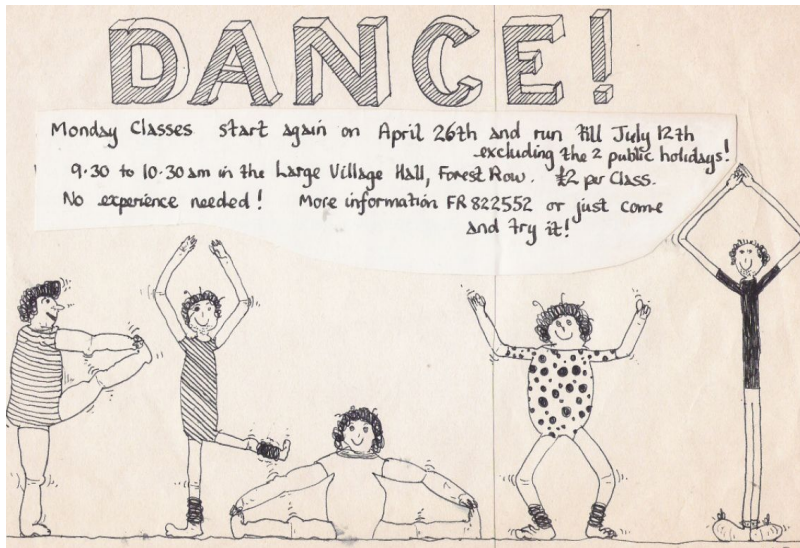 DANCE!
Monday Classes start again on April 26th and run till July 12th
excluding the 2 public holidays!
9.30 to 10.30 am in the Large Village Hall, Forest Row. £2 per Class.
No experience needed! More information FR 822552 or just come
and try it!